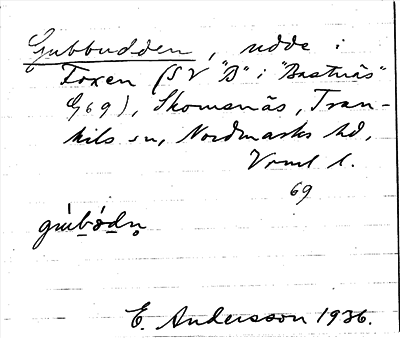 Gubbudden, udde i
Foxen (SV "B" i "Bastnäs"
G69), Skomsnäs, Tran-
kils sn, Nordmarks hd,
Vrml l.
69
E. Andersson 1936.